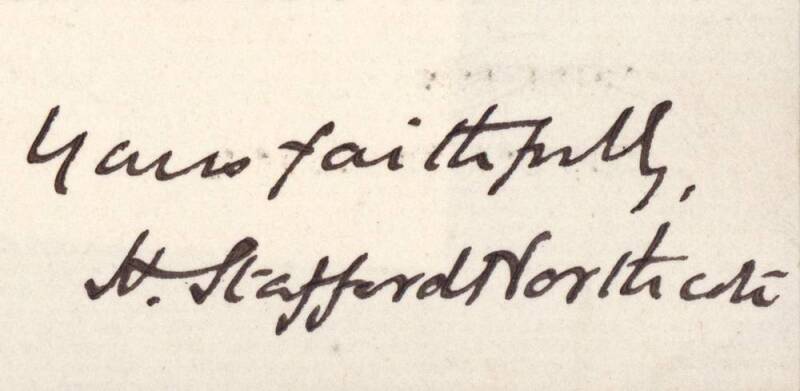 Yours faithfully,
H. Stafford Northcote